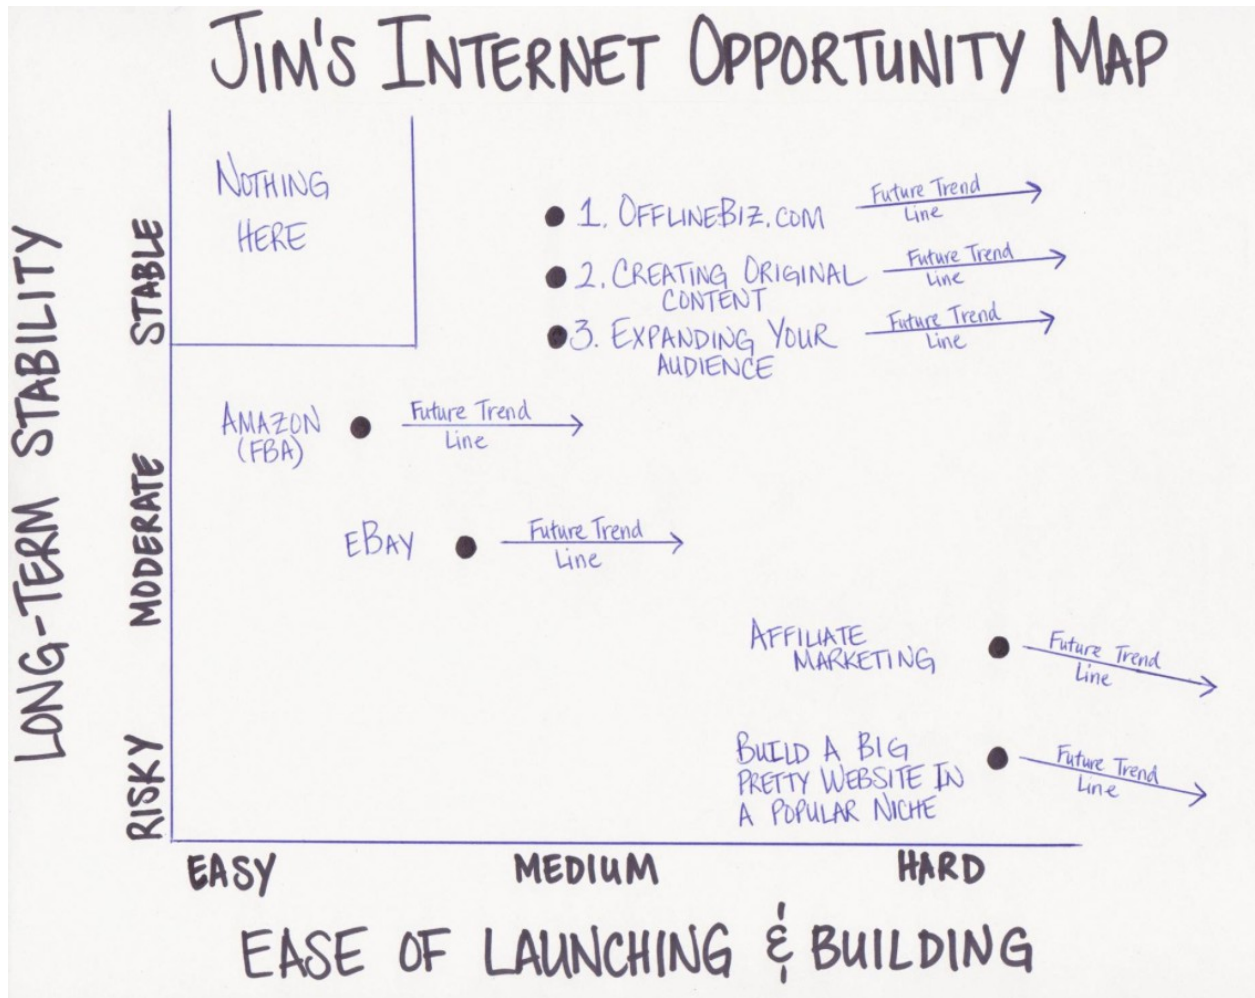 JIM'S INTERNET OPPORTUNITY MAP
LONG-TERM STABILITY
STABLE
MODERATE
RISKY
NOTHING
HERE
1. OFFLINEBIZ.COM
Future Trend
Line
2. CREATING ORIGINAL
CONTENT
Future Trend
Line
3. EXPANDING YOUR
AUDIENCE
Future Trend
Line
AMAZON
(FBA)
Future Trend
Line
EBAY
Future Trend
Line
AFFILIATE
MARKETING
Future Trend
Line
BUILD A BIG
PRETTY WEBSITE IN
A POPULAR NICHE
Future Trend
Line
EASY
MEDIUM
HARD
EASE OF LAUNCHING & BUILDING